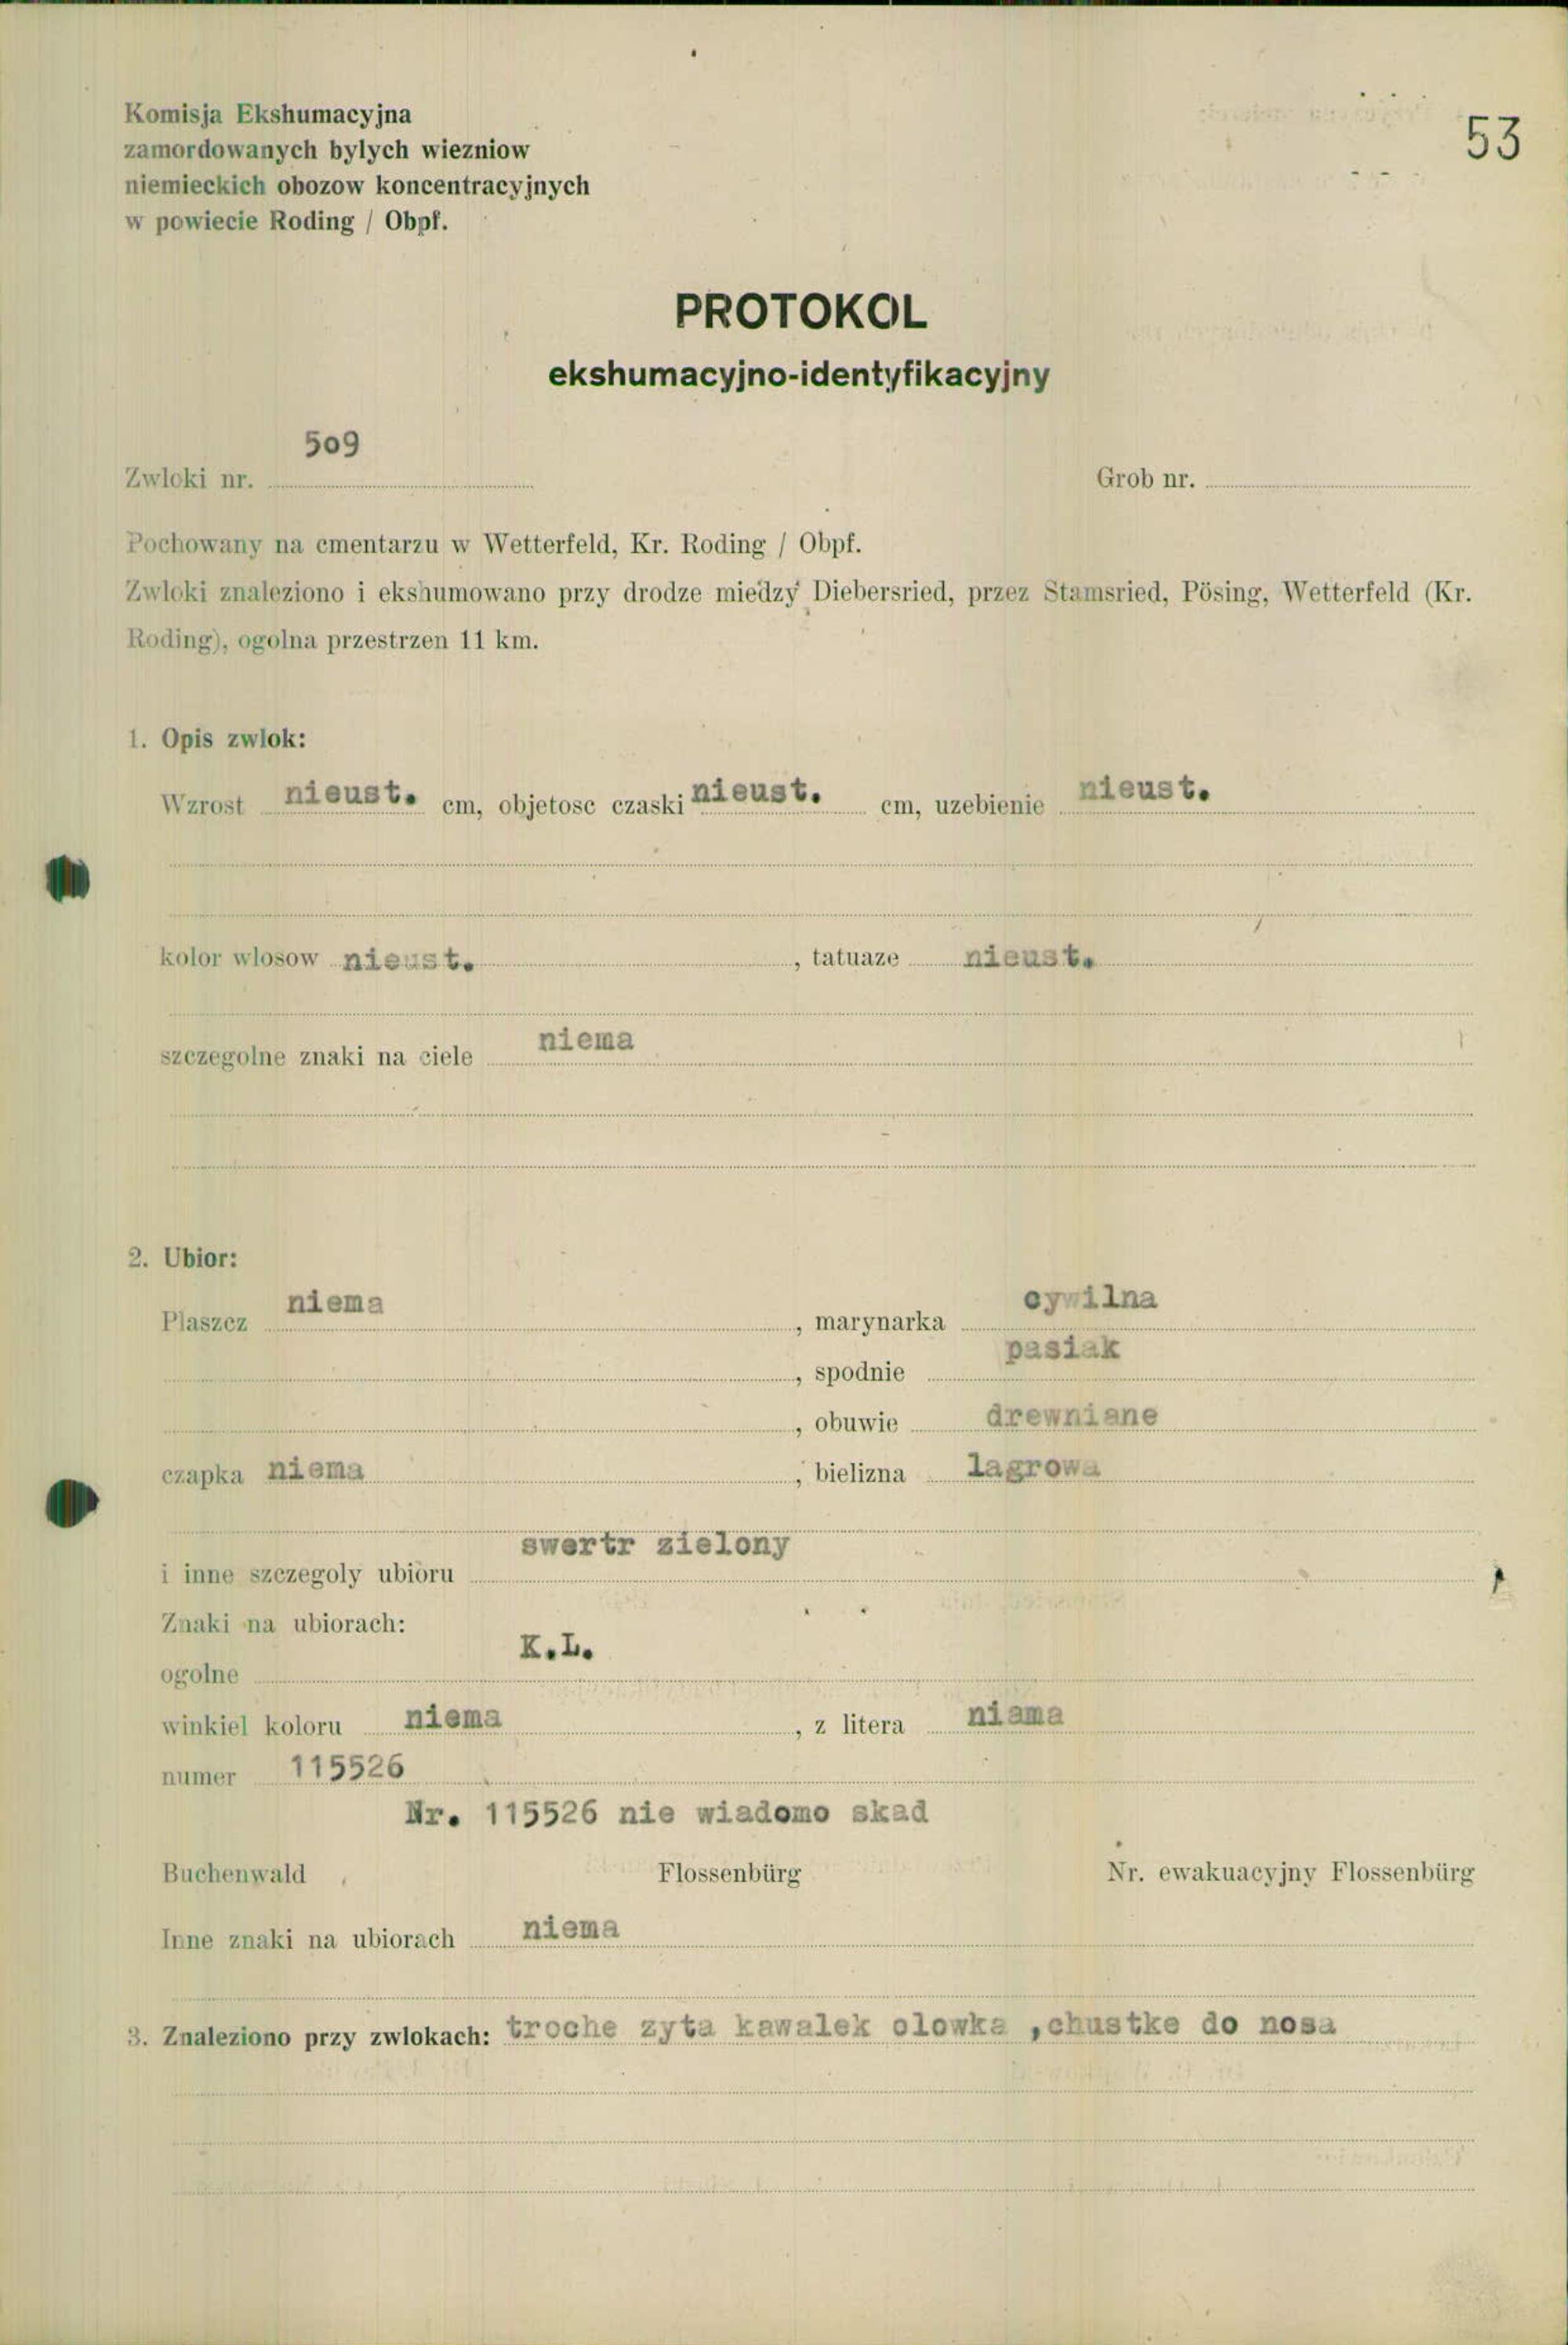 53
Komisja Ekshumacyjna
zamordowanych bylych wiezniow
niemieckich obozow koncentracyjnych
w powiecie Roding / Obpf.
PROTOKOL
ekshumacyjno-identyfikacyjny
Zwloki nr. 509 Grob nr.
Pochowany na cmentarzu w Wetterfeld, Kr. Roding / Obpf.
Zwloki znaleziono i ekshumowano przy drodze miedzy Diebersried, przez Stamsried, Pösing, Wetterfeld (Kr.
Roding), ogolna przestrzen 11 km.
1. Opis zwlok:
Wzrost nieust. cm, objetosc czaski nieust. cm, uzebienie nieust.
kolor wlosow nieust. , tatuaze nieust.
szczegolne znaki na ciele niema
2. Ubior:
Plaszcz niema , marynarka cywilna
, spodnie pasiak
, obuwie drewniane
czapka niema , bielizna lagrowa
i inne szczegoly ubioru swertr zielony
Znaki na ubiorach:
ogolne K.L.
winkiel koloru niema , z litera niama
numer 115526
Nr. 115526 nie wiadomo skad
Buchenwald , Flossenbürg Nr. ewakuacyjny Flossenbürg
Inne znaki na ubiorach niema
3. Znaleziono przy zwlokach: troche zyta kawalek olowka ,chustke do nosa